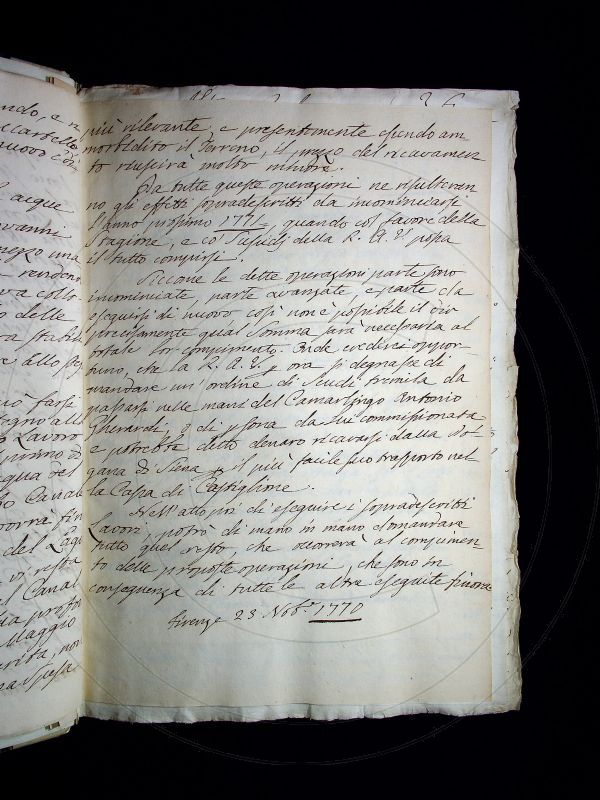 più rilevante, e presentemente essendo am
morbidito il Terreno, il prezzo del ricavamen
to riuscirà molto minore.
Da tutte queste operazioni ne risulteran
no gli effetti sopradescritti da incominciarsi
l'anno prossimo 1771, quando col favore della
stagione, e co' Sussidj della R. A. V. possa
il tutto compirsi.
Siccome le dette operazioni parte sono
incominciate, parte avanzate, e parte da
eseguirsi di nuovo così non è possibile il dir
precisamente qual somma sarà necessaria al
totale lor compimento. Onde crederei oppor
tuno, che la R. A. V. p ora si degnasse di
mandare un' ordine di Scudi tremila da
passarsi nelle mani del Camarlingo Antonio
Gherardi, o di psona da lui commissionata
e potrebbe detto denaro ricavarsi dalla Do-
gana di Siena p il più facile suo trasporto nel
la Cassa di Castiglione.
Nell' atto poi di eseguire i sopradescritti
Lavori, potrò di mano in mano domandare
tutto quel resto, che occorrerà al compimen-
to delle proposte operazioni, che sono in
conseguenza di tutte le altre eseguite finora
Firenze 23 Nob.e 1770
ando, e
nuovo
acque
vanni
mezzo una
rendon
va collo
delle
va stabili
allo
farsi
Lavoro
qua del
Canale
vorrà fin
del Lago
vi resta
el Canal
ia profon
Maggio
erita, non